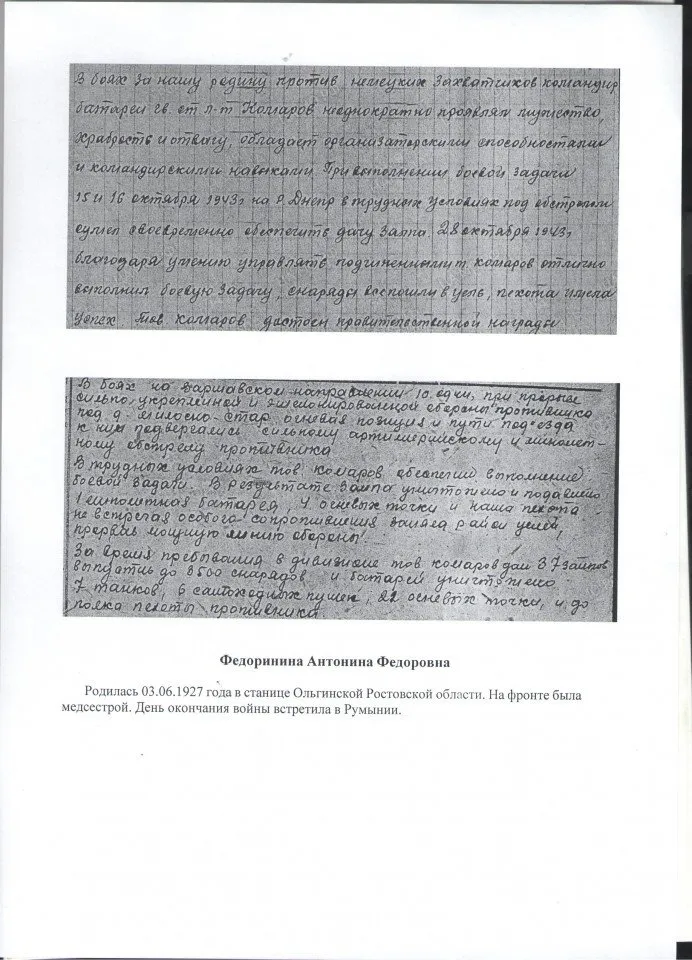 В боях за нашу родину против немецких захватчиков командир
батареи гв. ст л-т Комаров неоднократно проявлял мужество,
храбрость и отвагу, обладает организаторскими способностями
и командирскими навыками. При выполнении боевой задачи
15 и 16 октября 1943г на р Днепр в трудных условиях под обстрелом
сумел своевременно обеспечить дачу залпа. 28 октября 1943г
благодаря умению управлять подчиненными т. Комаров отлично
выполнил боевую задачу, снаряды легли в цель, пехота имела
успех. Тов Комаров достоин правительственной награды
В боях на варшавском направлении при прорыве
сильно укрепленной и эшелонированной обороны противника
под д. стар огневая позиция и пути подъезда
к ним подвергались сильному артиллерийскому и миномет-
ному обстрелу противника
В трудных условиях тов Комаров обеспечил выполнение
боевой задачи. В результате залпа уничтожено и подавлено
1 минометная батарея, 4 огневых точки и наша пехота
не встречая особого сопротивления заняла район целей,
прорвав мощную линию обороны.
За время пребывания в дивизионе тов Комаров дал 37 залпов
выпустив до 3500 снарядов и батареи уничтожено
7 танков, 6 самоходных пушек, 22 огневых точки, и до
полка пехоты противника.
Федоринина Антонина Федоровна
Родилась 03.06.1927 года в станице Ольгинской Ростовской области. На фронте была
медсестрой. День окончания войны встретила в Румынии.